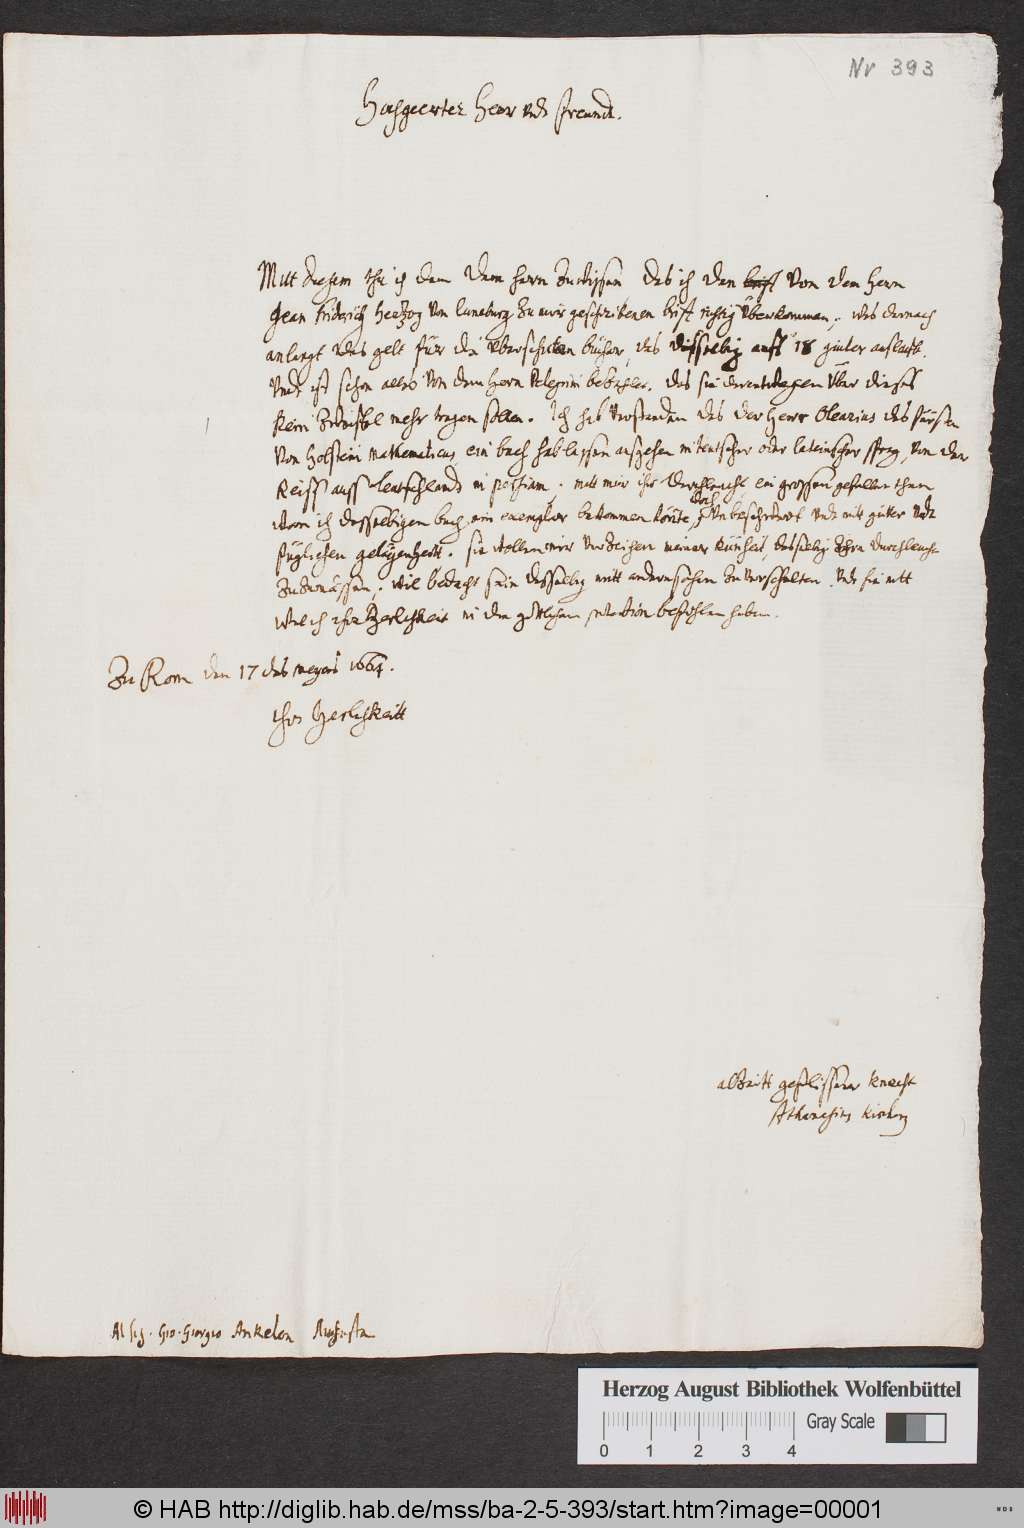 Nr 393
Hochgeerter Herr undt freundt.
Mitt diesem thu ich dem herrn zu wissen das ich den brieff von dem herrn
Jean Friderich Hertzog von luneburg zu mir geschribenen brif richtig überkommen, was darnach
anlangt das gelt für die überschickten bücher, das dasselbig auff 18 auflauft.
undt ist schon alles von dem hern Pelegrini bezahlet. das sie derentwegen über dieses
kein zweiffel mehr tragen sollen. Ich hab verstanden das der Herr Olearius des fürsten
von Holstein Mathematicus ein buch hab lassen aufgehen in teutscher oder lateinischer sprag, von der
Reiss auss teutschlandt in persiam, ihr Durchleucht, ein grossen gefallen thun
wan ich desselbigen buch ein exemplar bekommen könte, doch unbeschwert undt mitt guter undt
füglichen gelegenheitt. sie wollen mir verzeihen meiner künheit, das ihro durchleucht
wil bedacht sein dasselbig mitt anderen sachen zu verschulten. undt sie mitt
ihre Herlichkeit in die göttlichen protection befohlen haben.
Zu Rom den 17 des meyens 1664.
ihre Herlichkeitt
alzeitt geflissner knecht
Athanasius Kircher
Al sig. Gio. Giorgio Ankelen Augusta
Herzog August Bibliothek Wolfenbüttel
Gray Scale
0 1 2 3 4
© HAB http://diglib.hab.de/mss/ba-2-5-393/start.htm?image=00001